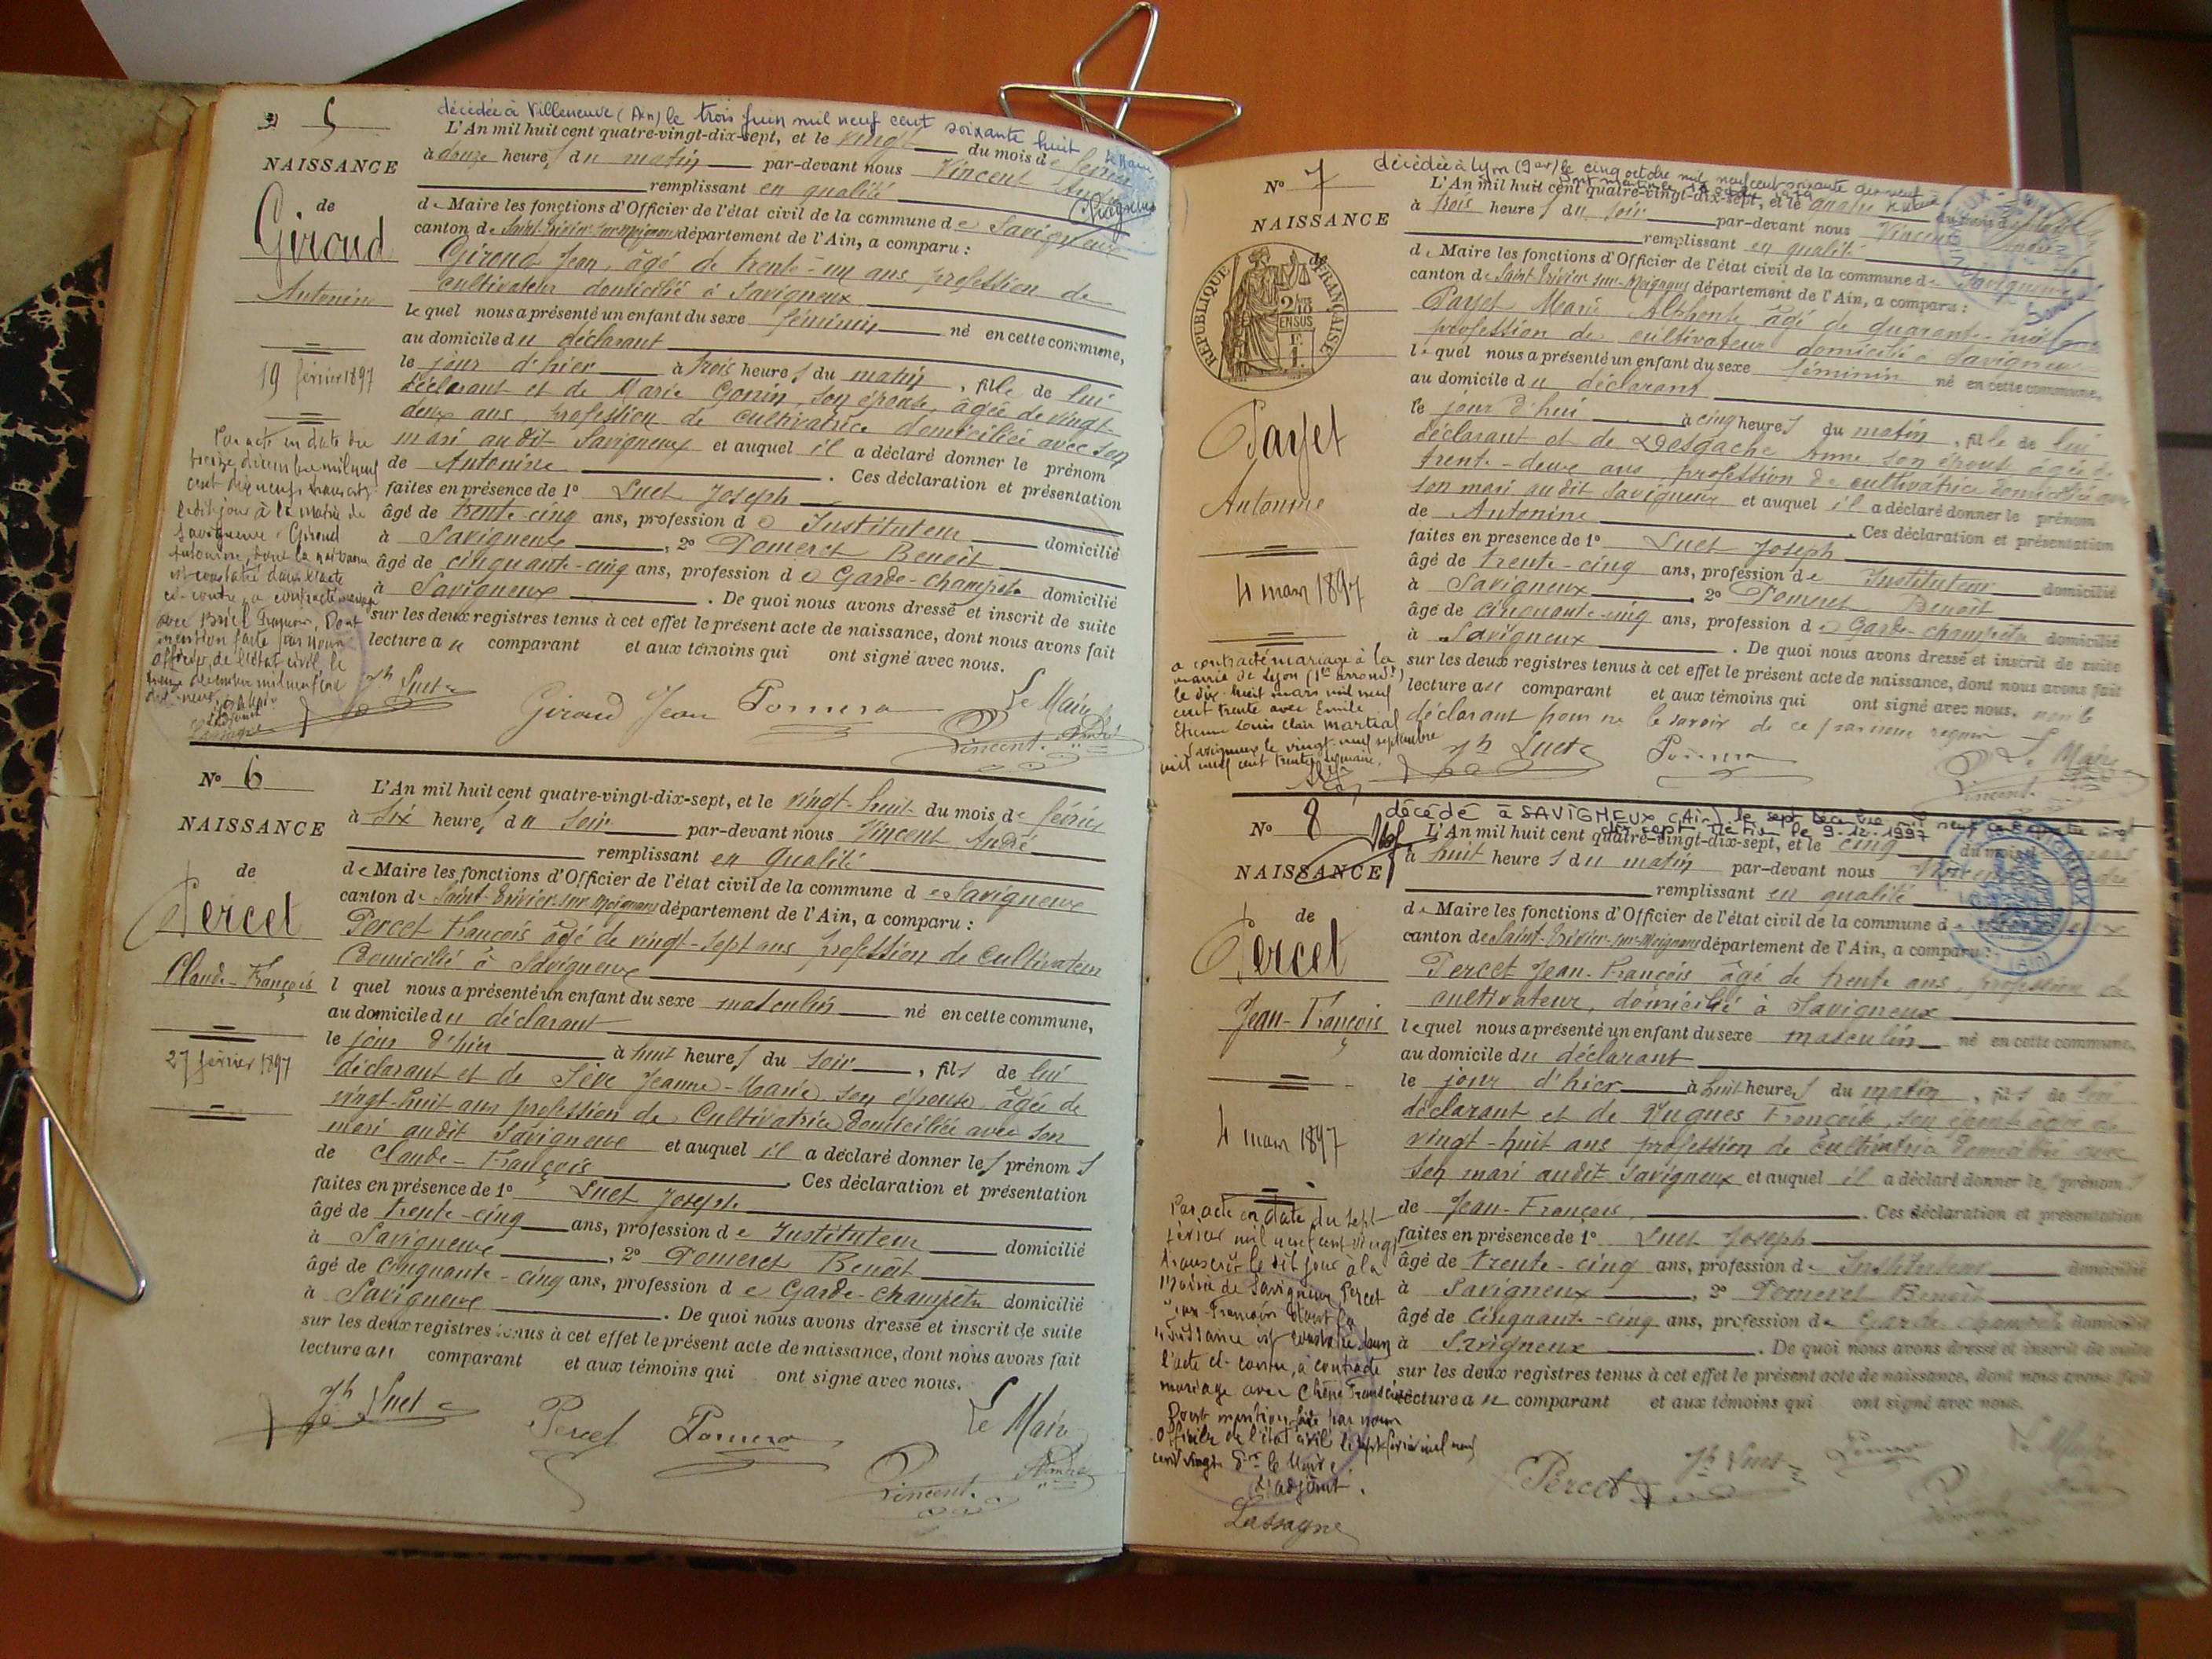 N° 5
NAISSANCE
de
Giroud
Antonine
19 février 1897
Par acte en date du
treize décembre mil neuf
cent dix neuf, transcrit
ledit jour à la mairie de
Savigneux, Giroud
Antonine, dont la naissance
est constatée dans l'acte
ci-contre, a contracté mariage
avec Dont
mention faite par nous
officier de l'état civil le
treize décembre mil neuf cent
dix-neuf
L'adjoint
Lassagne
décédée à Villeneuve (Ain) le trois juin mil neuf cent soixante huit
L'An mil huit cent quatre-vingt-dix-sept, et le vingt du mois de février
à douze heures du matin par-devant nous Vincent André
remplissant en qualité
de Maire les fonctions d'Officier de l'état civil de la commune de Savigneux
canton de Saint-Trivier-sur-Moignans département de l'Ain, a comparu :
Giroud Jean, âgé de trente-un ans profession de
cultivateur domicilié à Savigneux
lequel nous a présenté un enfant du sexe féminin né en cette commune,
au domicile du déclarant
le jour d'hier à trois heures du matin, fille de lui
déclarant et de Marie Gonin, son épouse, âgée de vingt
deux ans profession de cultivatrice domiciliée avec son
mari audit Savigneux et auquel il a déclaré donner le prénom
de Antonine. Ces déclaration et présentation
faites en présence de 1° Luet Joseph
âgé de trente-cinq ans, profession de Instituteur domicilié
à Savigneux, 2° Pomeret Benoit
âgé de cinquante-cinq ans, profession de Garde-champêtre domicilié
à Savigneux. De quoi nous avons dressé et inscrit de suite
sur les deux registres tenus à cet effet le présent acte de naissance, dont nous avons fait
lecture au comparant et aux témoins qui ont signé avec nous.
Jh Luet Giroud Jean Le Maire
Vincent André
N° 6
NAISSANCE
de
Percet
Claude-François
27 février 1897
L'An mil huit cent quatre-vingt-dix-sept, et le vingt-huit du mois de février
à six heures du soir par-devant nous Vincent André
remplissant en qualité
de Maire les fonctions d'Officier de l'état civil de la commune de Savigneux
canton de Saint-Trivier-sur-Moignans département de l'Ain, a comparu :
Percet François âgé de vingt-sept ans profession de cultivateur
domicilié à Savigneux
l quel nous a présenté un enfant du sexe masculin né en cette commune,
au domicile du déclarant
le jour d'hier à huit heures du soir, fils de lui
déclarant et de Sève Jeanne-Marie son épouse âgée de
vingt-huit ans profession de Cultivatrice domiciliée avec son
mari audit Savigneux et auquel il a déclaré donner les prénoms
de Claude-François. Ces déclaration et présentation
faites en présence de 1° Luet Joseph
âgé de trente-cinq ans, profession de Instituteur domicilié
à Savigneux, 2° Pomeret Benoit
âgé de cinquante-cinq ans, profession de Garde-champêtre domicilié
à Savigneux. De quoi nous avons dressé et inscrit de suite
sur les deux registres tenus à cet effet le présent acte de naissance, dont nous avons fait
lecture au comparant et aux témoins qui ont signé avec nous.
Jh Luet Percet Le Maire
Vincent André
N° 7
NAISSANCE
de
RÉPUBLIQUE FRANÇAISE
Payet
Antonine
4 mars 1897
a contracté mariage à la
mairie de Lyon (1er arrond.)
le dix-huit mars mil neuf
cent trente avec Emile
Etienne Louis Clair Martial
Savigneux le vingt-neuf septembre
mil neuf cent trente
décédée à Lyon (9e ar) le cinq octobre mil neuf cent soixante dix neuf
L'An mil huit cent quatre-vingt-dix-sept, et le quatre
à trois heures du soir par-devant nous Vincent André
remplissant en qualité
de Maire les fonctions d'Officier de l'état civil de la commune de Savigneux
canton de Saint-Trivier-sur-Moignans département de l'Ain, a comparu :
Payet Marie Alphonse âgé de quarante-huit ans
profession de cultivateur domicilié à Savigneux
lequel nous a présenté un enfant du sexe féminin né en cette commune,
au domicile du déclarant
le jour d'hui à cinq heures du matin, fille de lui
déclarant et de Desgache Anne son épouse âgée de
trente-deux ans profession de cultivatrice domiciliée avec
son mari audit Savigneux et auquel il a déclaré donner le prénom
de Antonine. Ces déclaration et présentation
faites en présence de 1° Luet Joseph
âgé de trente-cinq ans, profession de Instituteur domicilié
à Savigneux 2° Pomeret Benoit
âgé de cinquante-cinq ans, profession de Garde-champêtre domicilié
à Savigneux. De quoi nous avons dressé et inscrit de suite
sur les deux registres tenus à cet effet le présent acte de naissance, dont nous avons fait
lecture au comparant et aux témoins qui ont signé avec nous, non le
déclarant pour ne le savoir de ce par nous requis
Jh Luet Le Maire
Vincent
N° 8
NAISSANCE
de
Percet
Jean-François
4 mars 1897
Par acte en date du sept
février mil neuf cent vingt
transcrit le dit jour à la
Mairie de Savigneux Percet
Jean-François dont la
naissance est constatée dans
l'acte ci-contre, a contracté
mariage avec Chêne Francine
Dont mention faite par nous
Officier de l'état civil le sept février mil neuf
cent vingt Pr le Maire
L'adjoint.
Lassagne
décédé à SAVIGNEUX (Ain), le sept décembre mil neuf cent quatre vingt
dix sept. Mention le 9.12.1997
L'An mil huit cent quatre-vingt-dix-sept, et le cinq du mois de mars
à huit heures du matin par-devant nous Vincent André
remplissant en qualité
de Maire les fonctions d'Officier de l'état civil de la commune de Savigneux
canton de Saint-Trivier-sur-Moignans département de l'Ain, a comparu :
Percet Jean-François âgé de trente ans, profession de
cultivateur, domicilié à Savigneux
lequel nous a présenté un enfant du sexe masculin né en cette commune,
au domicile du déclarant
le jour d'hier à huit heures du matin, fils de lui
déclarant et de Hugues Françoise, son épouse âgée de
vingt-huit ans profession de cultivatrice domiciliée avec
son mari audit Savigneux et auquel il a déclaré donner les prénoms
de Jean-François. Ces déclaration et présentation
faites en présence de 1° Luet Joseph
âgé de trente-cinq ans, profession de Instituteur domicilié
à Savigneux, 2° Pomeret Benoit
âgé de cinquante-cinq ans, profession de Garde champêtre domicilié
à Savigneux. De quoi nous avons dressé et inscrit de suite
sur les deux registres tenus à cet effet le présent acte de naissance, dont nous avons fait
lecture au comparant et aux témoins qui ont signé avec nous.
Percet Jh Luet Le Maire